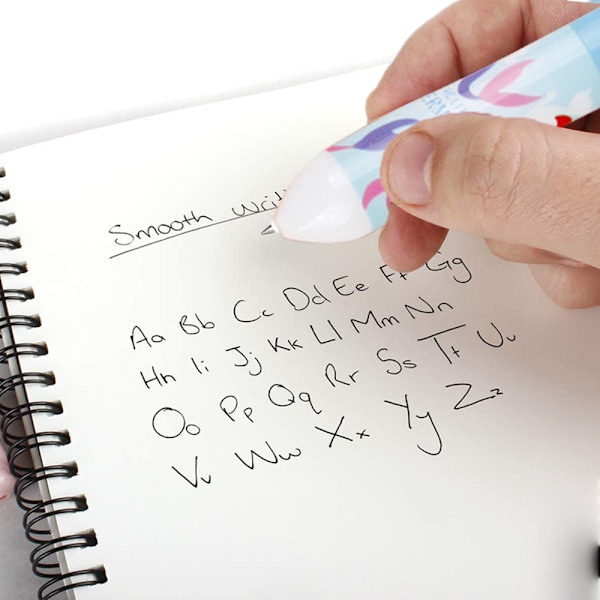 Smooth Writi
Aa Bb Cc Dd Ee Ff Gg
Hh Ii Jj Kk Ll Mm Nn
Oo Pp Qq Rr Ss Tt Uu
Vv Ww Xx Yy Zz